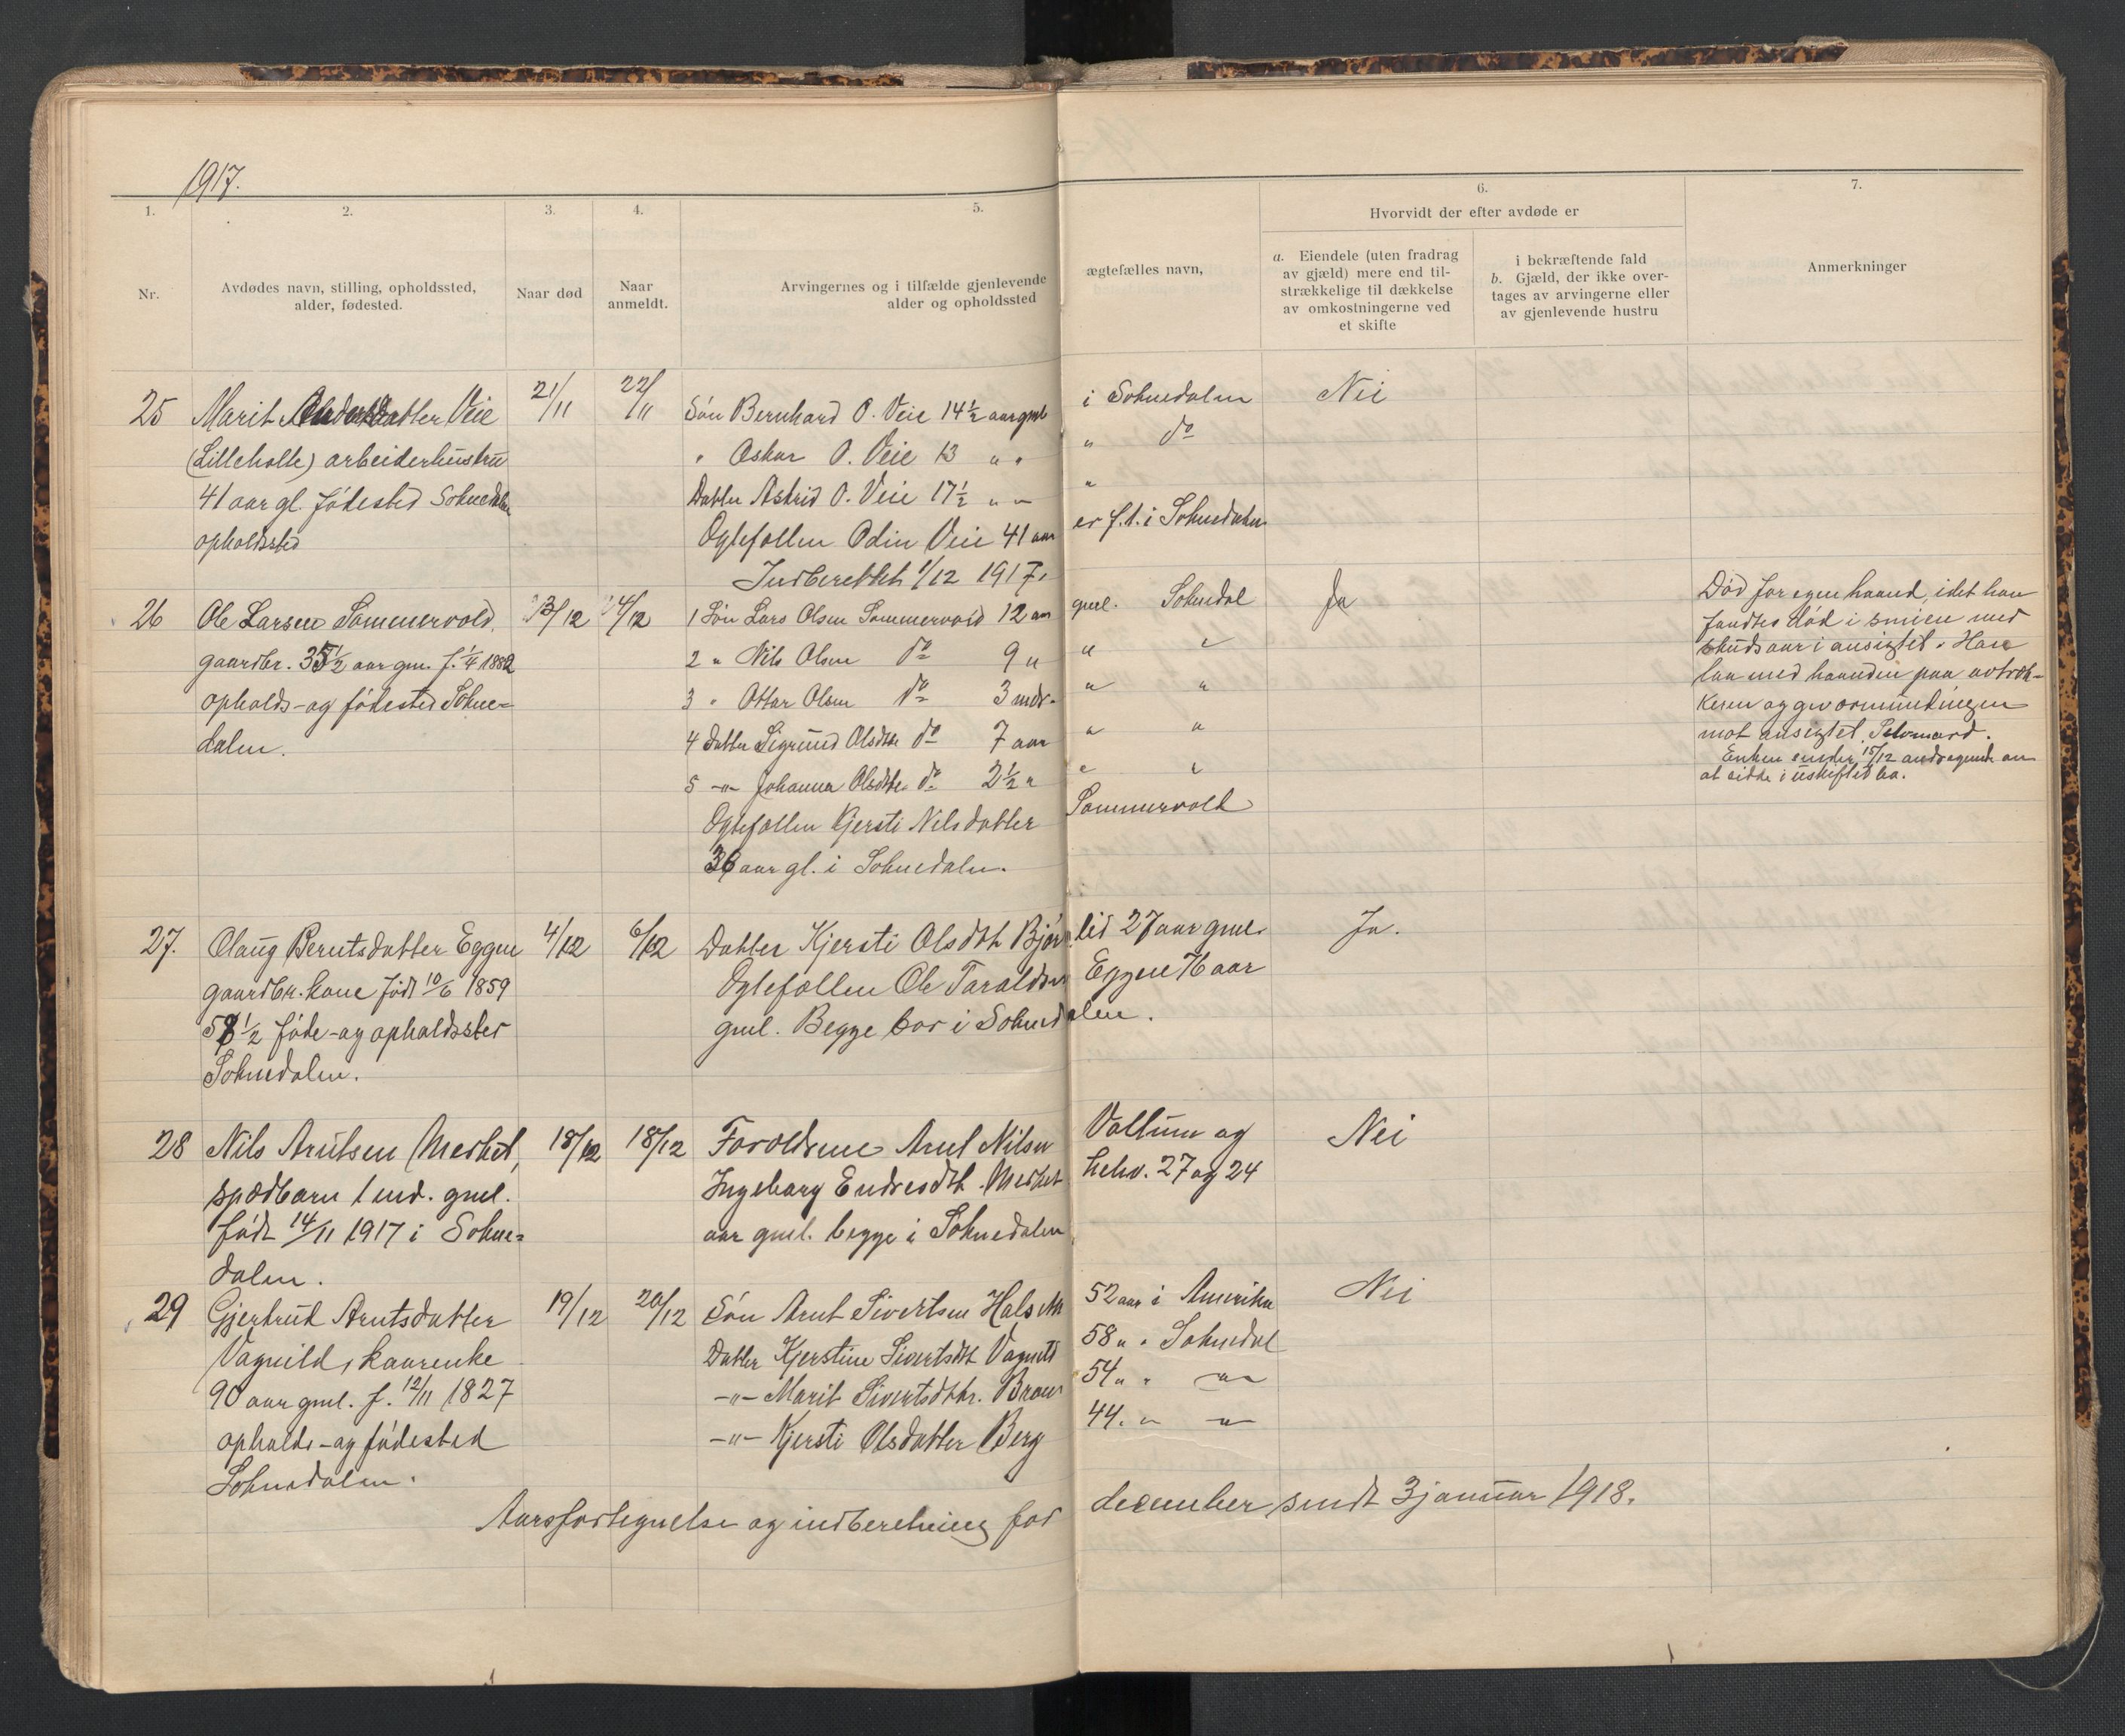 1917.
1. 2. 3. 4. 5. 6. 7.
Nr.
Avdødes navn, stilling, opholdssted,
alder, fødested.
Naar død
Naar
anmeldt.
Arvingernes og i tilfælde gjenlevende ægtefælles navn,
alder og opholdssted
Hvorvidt der efter avdøde er
a. Eiendele (uten fradrag
av gjæld) mere end til-
strækkelige til dækkelse
av omkostningerne ved
et skifte
i bekræftende fald
b. Gjæld, der ikke over-
tages av arvingerne eller
av gjenlevende hustru
Anmerkninger
25 Marit datter Veie
(Lilleholte) arbeiderhustru
41 aar gl. fødested Soknedalen
opholdssted
21/11 22/11
Søn Bernhard O. Veie 14½ aar gml i Soknedalen Nei
" Oskar O. Veie 13 " " " do
Datter Astrid O. Veie 17½ " " "
Egtefællen Odin Veie 41 aar er f.t. i Soknedalen
Indberettet 1/12 1917.
26 Ole Larsen Sommervold,
gaardbr. 35½ aar gm. f. 1/4 1882
opholds- og fødested Sokne-
dalen.
3/12 4/12
1 Søn Lars Olsen Sommervold 12 aar gml. Soknedal Ja
2 " Nils Olsen do 9 " " "
3 " Ottar Olsen do 3 mdr. " "
4 Datter Sigrund Olsdtr do 7 aar " "
5 -"- Johanna Olsdtr. do 2½ " " "
Egtefællen Kjersti Nilsdatter Sommervold
36 aar gl. i Soknedalen.
Død for egen haand, idet han
fandtes død i smien med
skudsaar i ansigtet. Han
laa med haanden paa avtræk-
keren og geværmundingen
mot ansigtet. Selvmord.
Enken sender 15/12 andragende om
at sidde i uskiftet bo.
27. Olaug Berntsdatter Eggen
gaardbr. kone født 10/6 1859
58½ føde- og opholdssted
Soknedalen.
4/12 6/12
Datter Kjersti Olsdtr Bjørlid 27 aar gml. Ja.
Egtefællen Ole Taraldsen Eggen 76 aar
gml. Begge bor i Soknedalen.
28 Nils Arntsen Merket,
spædbarn 1 md. gml.
født 14/11 1917 i Sokne-
dalen.
18/12 18/12
Forældrene Arnt Nilsen Vollum og Nei
Ingeborg Endresdtr. Merket hehv. 27 og 24
aar gml. begge i Soknedalen
29 Gjertrud Arntsdatter
Vagnild, kaarenke
90 aar gml. f. 12/11 1827
opholds- og fødested
Soknedalen.
19/12 20/12
Søn Arnt Sivertsen Halseth 52 aar i Amerika Nei
Datter Kjerstine Sivertsdtr Vagnild 58 " " Soknedal
-"- Marit Sivertsdtr. 54 " " -"-
-"- Kjersti Olsdatter Berg 44. " -"-
Aarsfortegnelse og indberetning for december sendt 3 januar 1918.